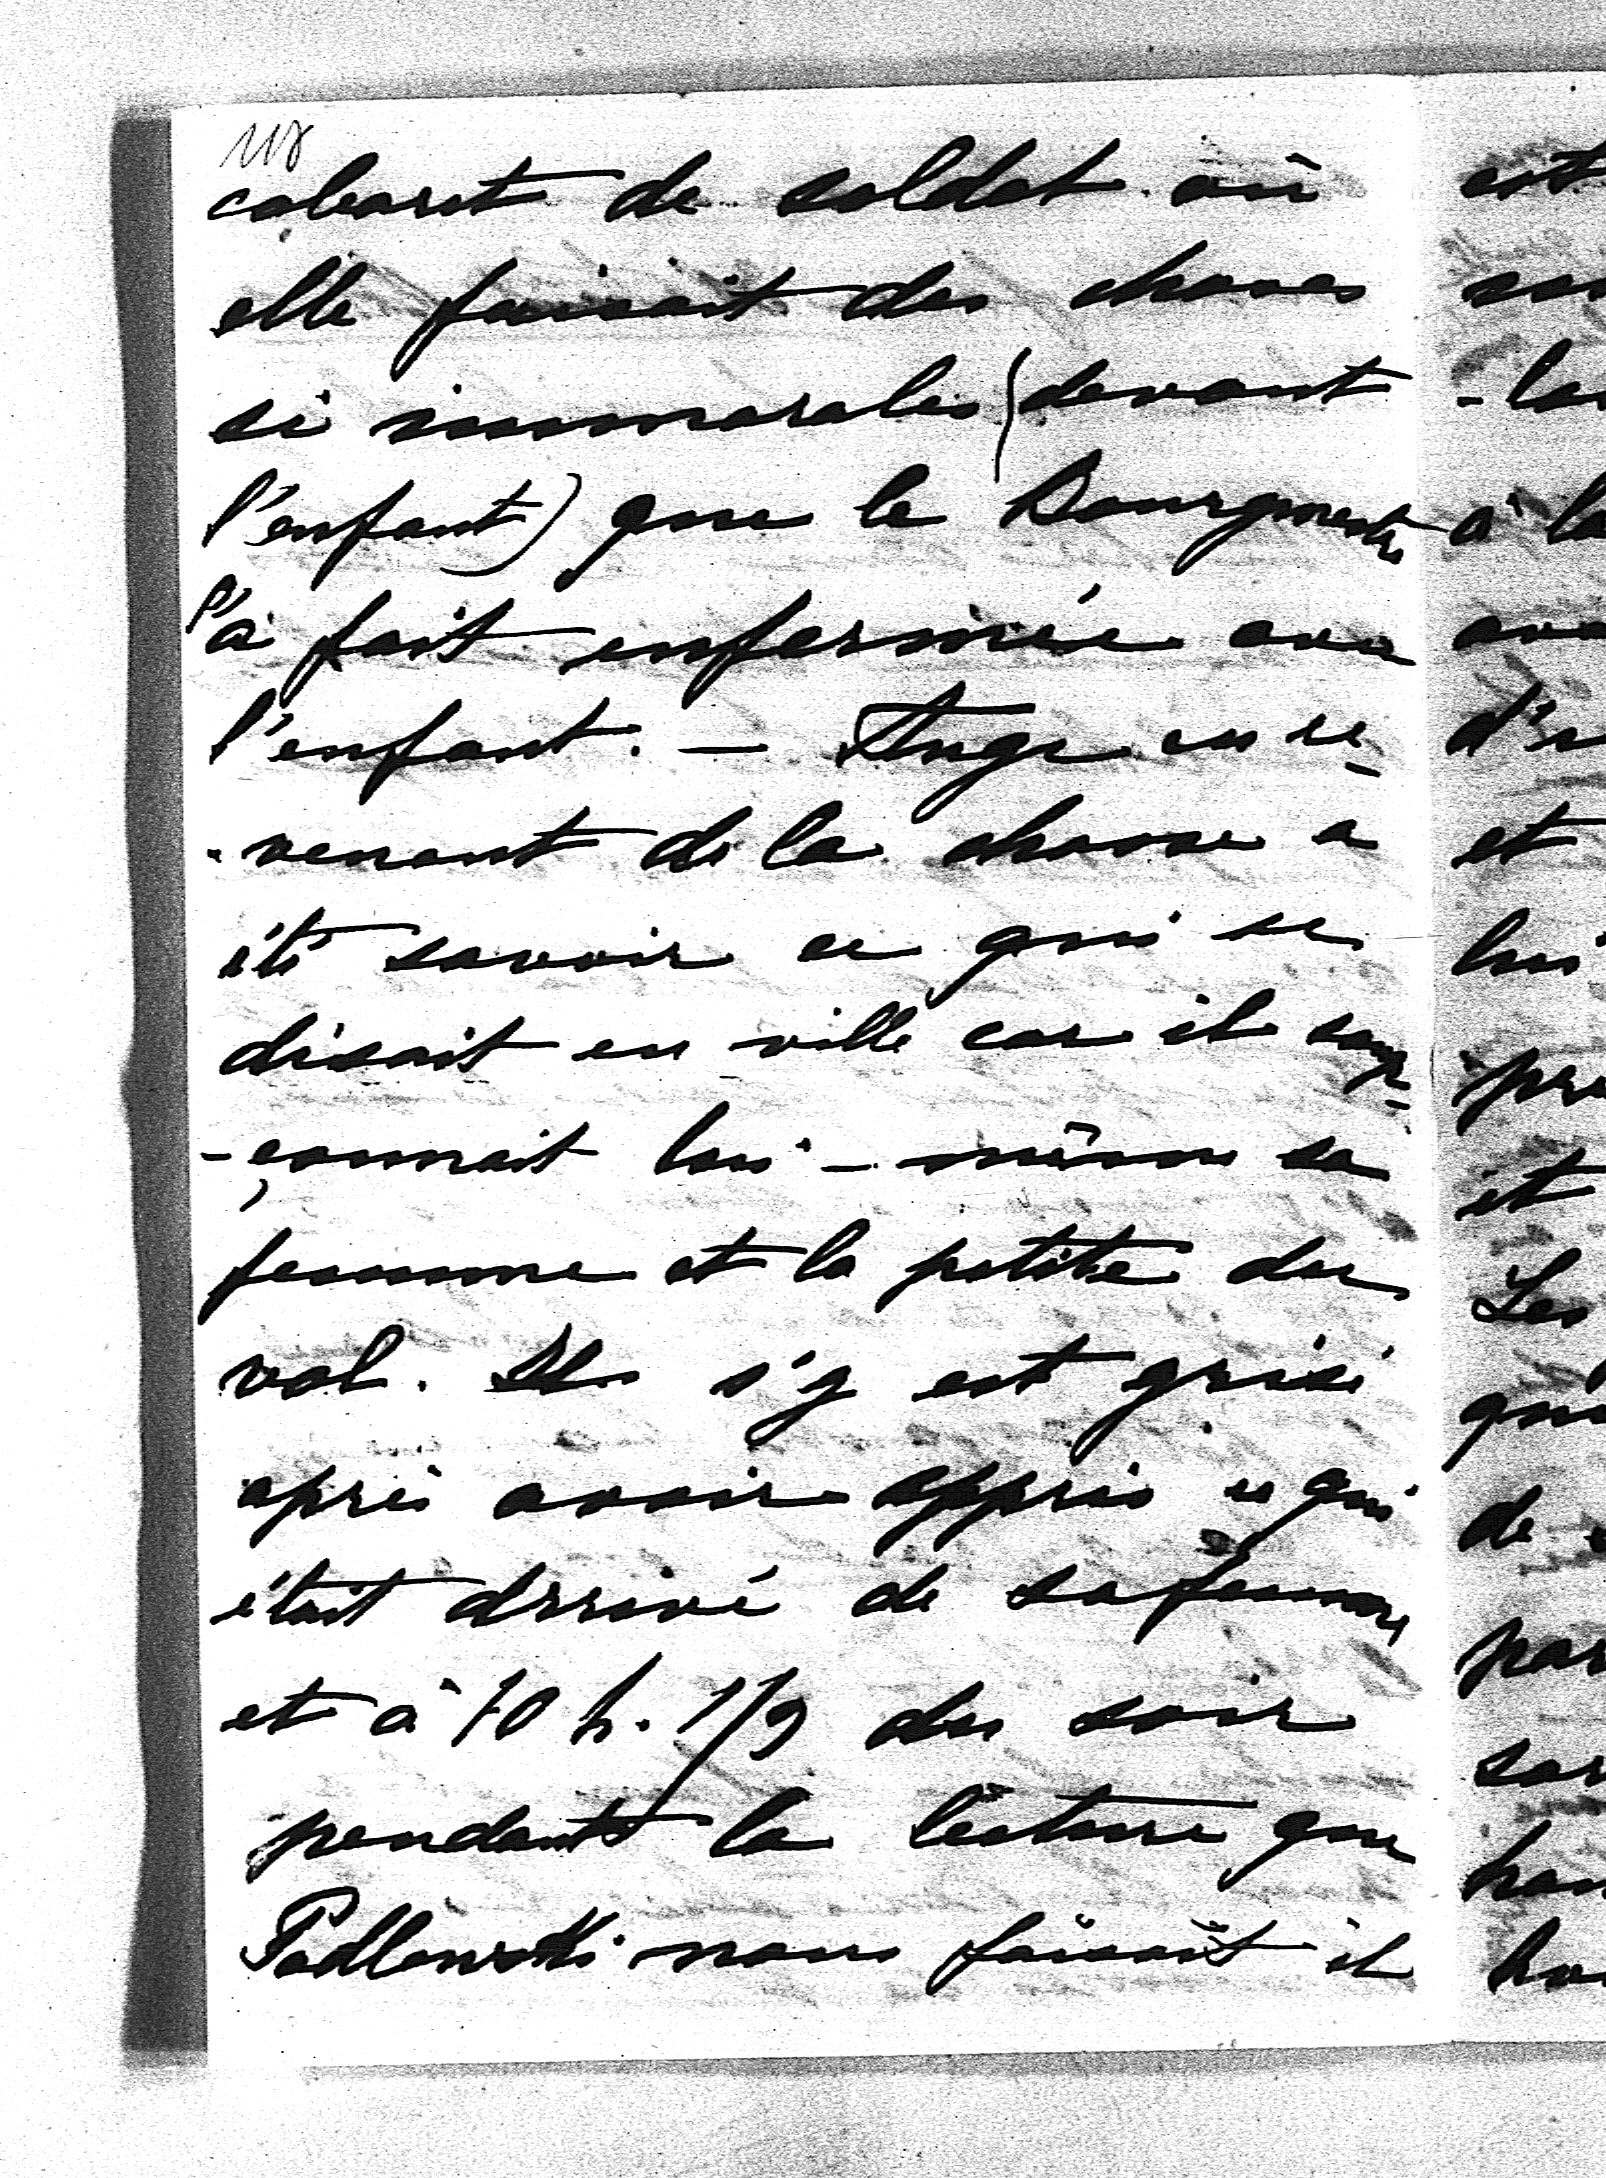 118
cabaret de soldat où
elle faisait des choses
si immorales (devant
l'enfant) que le Bourgmestre
l'a fait enfermée avec
l'enfant. — Ange en re-
-venant de la chasse a
été savoir ce qui se
disait en ville car il soup-
-çonnait lui-même sa
femme et la petite du
vol. Il s'y est grisé
après avoir appris ce qui
était arrivé de sa femme
et à 10 h. 1/2 du soir
pendant la lecture que
Podlowski nous faisait il
est
-la
à la
et
lui
et
Les
de